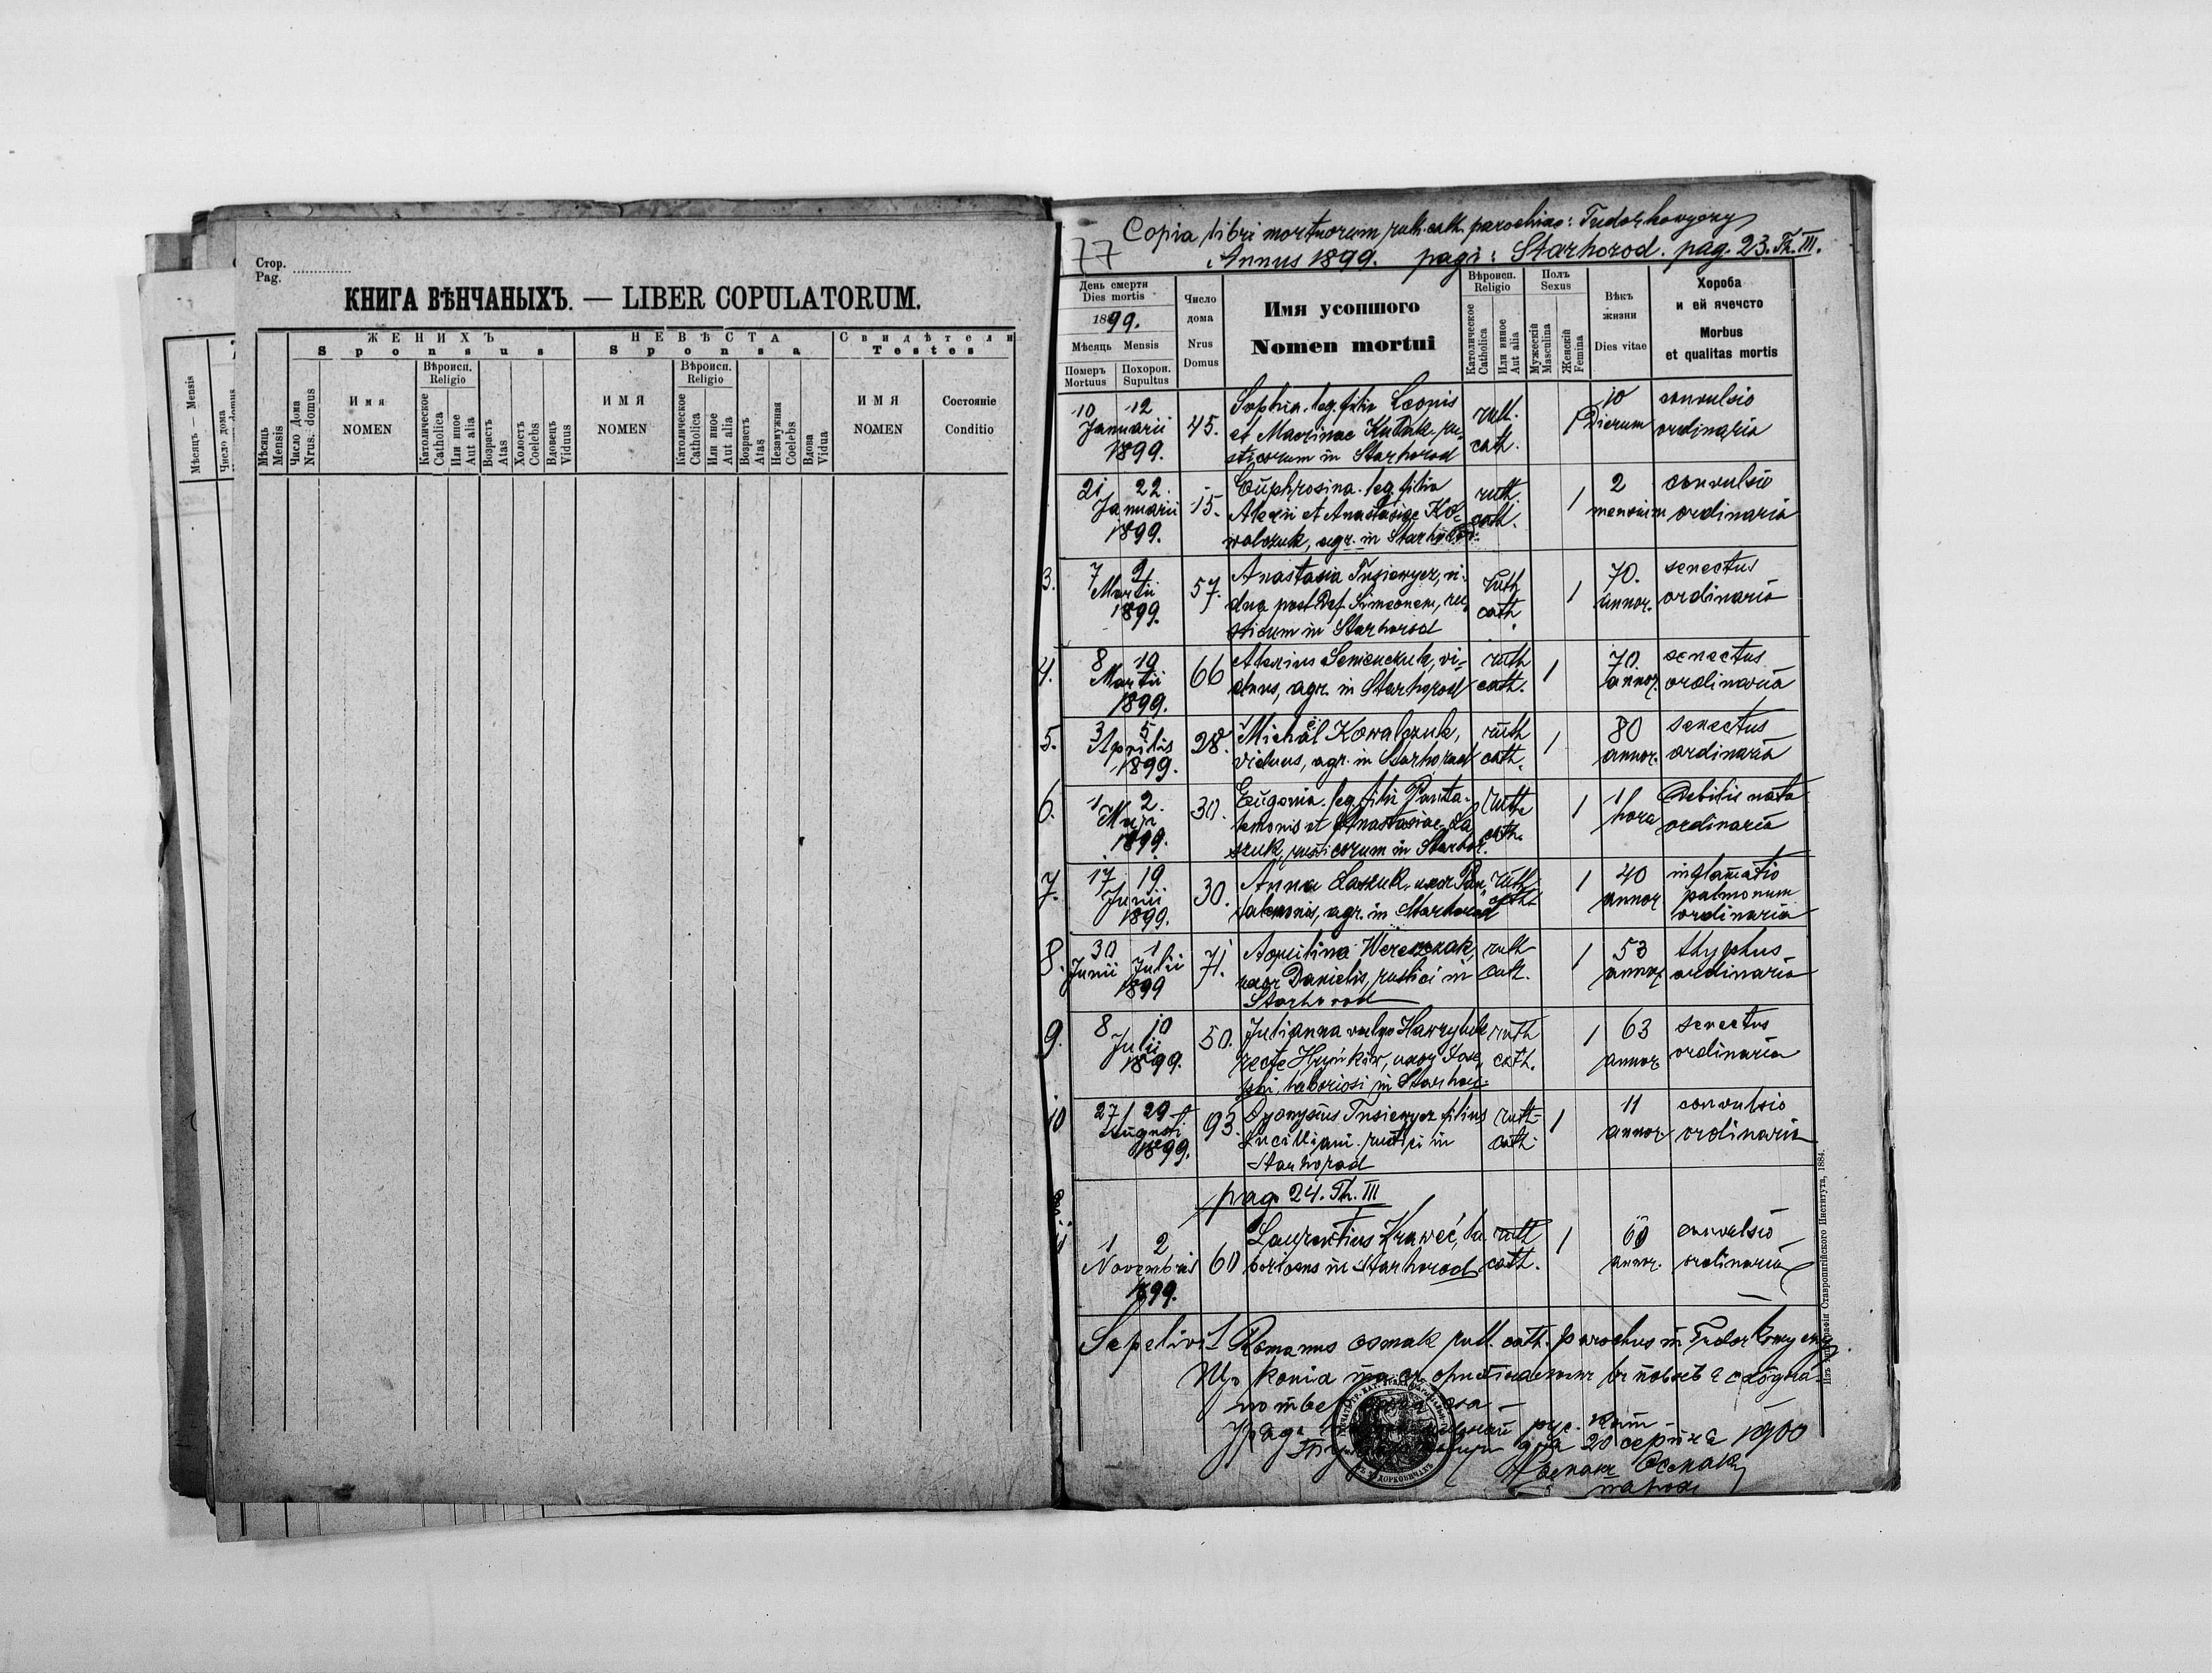 Стор.
Pag.
КНИГА ВѢНЧАНЫХЪ. — LIBER COPULATORUM.
Мѣсяць — Mensis
Число дома
Мѣсяць
Mensis
Число Дома
Nrus. domus
ЖЕНИХЪ
Sponsus
Имя
NOMEN
Вѣроисп.
Religio
Католическое
Catholica
Или иное
Aut alia
Возрастъ
Atas
Холостъ
Coelebs
Вдовець
Viduus
НЕВѢСТА
Sponsa
ИМЯ
NOMEN
Вѣроисп.
Religio
Католическое
Catholica
Или иное
Aut alia
Возрастъ
Atas
Незамужная
Coelebs
Вдова
Vidua
Свидѣтели
Testes
ИМЯ
NOMEN
Состояніе
Conditio
77
Copia libri mortuorum ruth. cath. parochiae: Tudorkowyczy
Annus 1899. pagi: Starhorod. pag. 23. Th. III.
День смерти
Dies mortis
1899.
Мѣсяць Mensis
Померъ
Mortuus
Похорон.
Supultus
Число
дома
Nrus
Domus
Имя усопшого
Nomen mortui
Вѣроисп.
Religio
Католическое
Catholica
Или иное
Aut alia
Полъ
Sexus
Мужескій
Masculina
Женскій
Femina
Вѣкъ
жизни
Dies vitae
Хороба
и ей ячечсто
Morbus
et qualitas mortis
10 12
Januarii
1899.
45.
Sophia. leg. filia Leonis
et Macrinae Kudak, ru-
sticorum in Starhorod
ruth.
cath.
1
10
Dierum
convulsio
ordinaria
21 22.
Januarii
1899.
15.
Euphrosina. leg. filia
Alexii et Anastasiae Ko-
walczuk, agr. in Starhorod.
ruth.
cath.
1
2
mensium
convulsio
ordinaria
3.
7 9
Martii
1899.
57.
Anastasia Tusiewycz, vi-
dua post Def. Simeonem, ru-
sticum in Starhorod
ruth
cath.
1
70.
annor.
senectus
ordinaria
4.
8 10
Martii
1899.
66
Semenczuk, vi-
duus, agr. in Starhorod
ruth
cath.
1
70.
annor.
senectus
ordinaria
5.
3 5
Aprilis
1899.
28.
Michaël Kowalczuk,
viduus, agr. in Starhorod
ruth
cath.
1
80
annor.
senectus
ordinaria
6.
1 2.
Maji
1899.
30.
Eugenia. leg. filia Panta-
lemonis et Anastasiae La-
szuk, rusticorum in Starhor.
ruth
cath.
1
1
hora
Debilis nata
ordinaria
7.
17 19
Junii
1899.
30.
Anna Laszuk, uxor Pan-
talemonis, agr. in Starhorod
ruth
cath
1
40
annor
inflamatio
pulmonum
ordinaria
8.
30 1
Junii Julii
1899
71.
Aquilina Wereszczak,
uxor Danielis, rustici in
Starhorod
ruth
cath.
1
53
annor
thyphus
ordinaria
9.
8 10
Julii
1899.
50.
Julianna vulgo Hawryluk
recte Hryńkiw, uxor Jose-
phi, laboriosi in Starhor.
ruth
cath.
1
63
annor
senectus
ordinaria
10
27 29
Augusti
1899.
93.
Dyonysius Tusiewycz filius
rustici in
Starhorod
ruth-
cath.
1
11
annor
convulsio
ordinaria
pag. 24. Th. III
1 2
Novembris
1899.
60
Laurentius Kraweć, la-
boriosus in Starhorod
ruth
cath.
1
60
annor.
convulsio
ordinaria
Sepelivit Romanus Osmak ruth. cath. parochus in Tudorkowyczy.
Що копія та съ
рус. кат.
дня 20 серпня 1900
Романъ Осмак
парох
Изъ типографіи Ставропигійского Института, 1884.